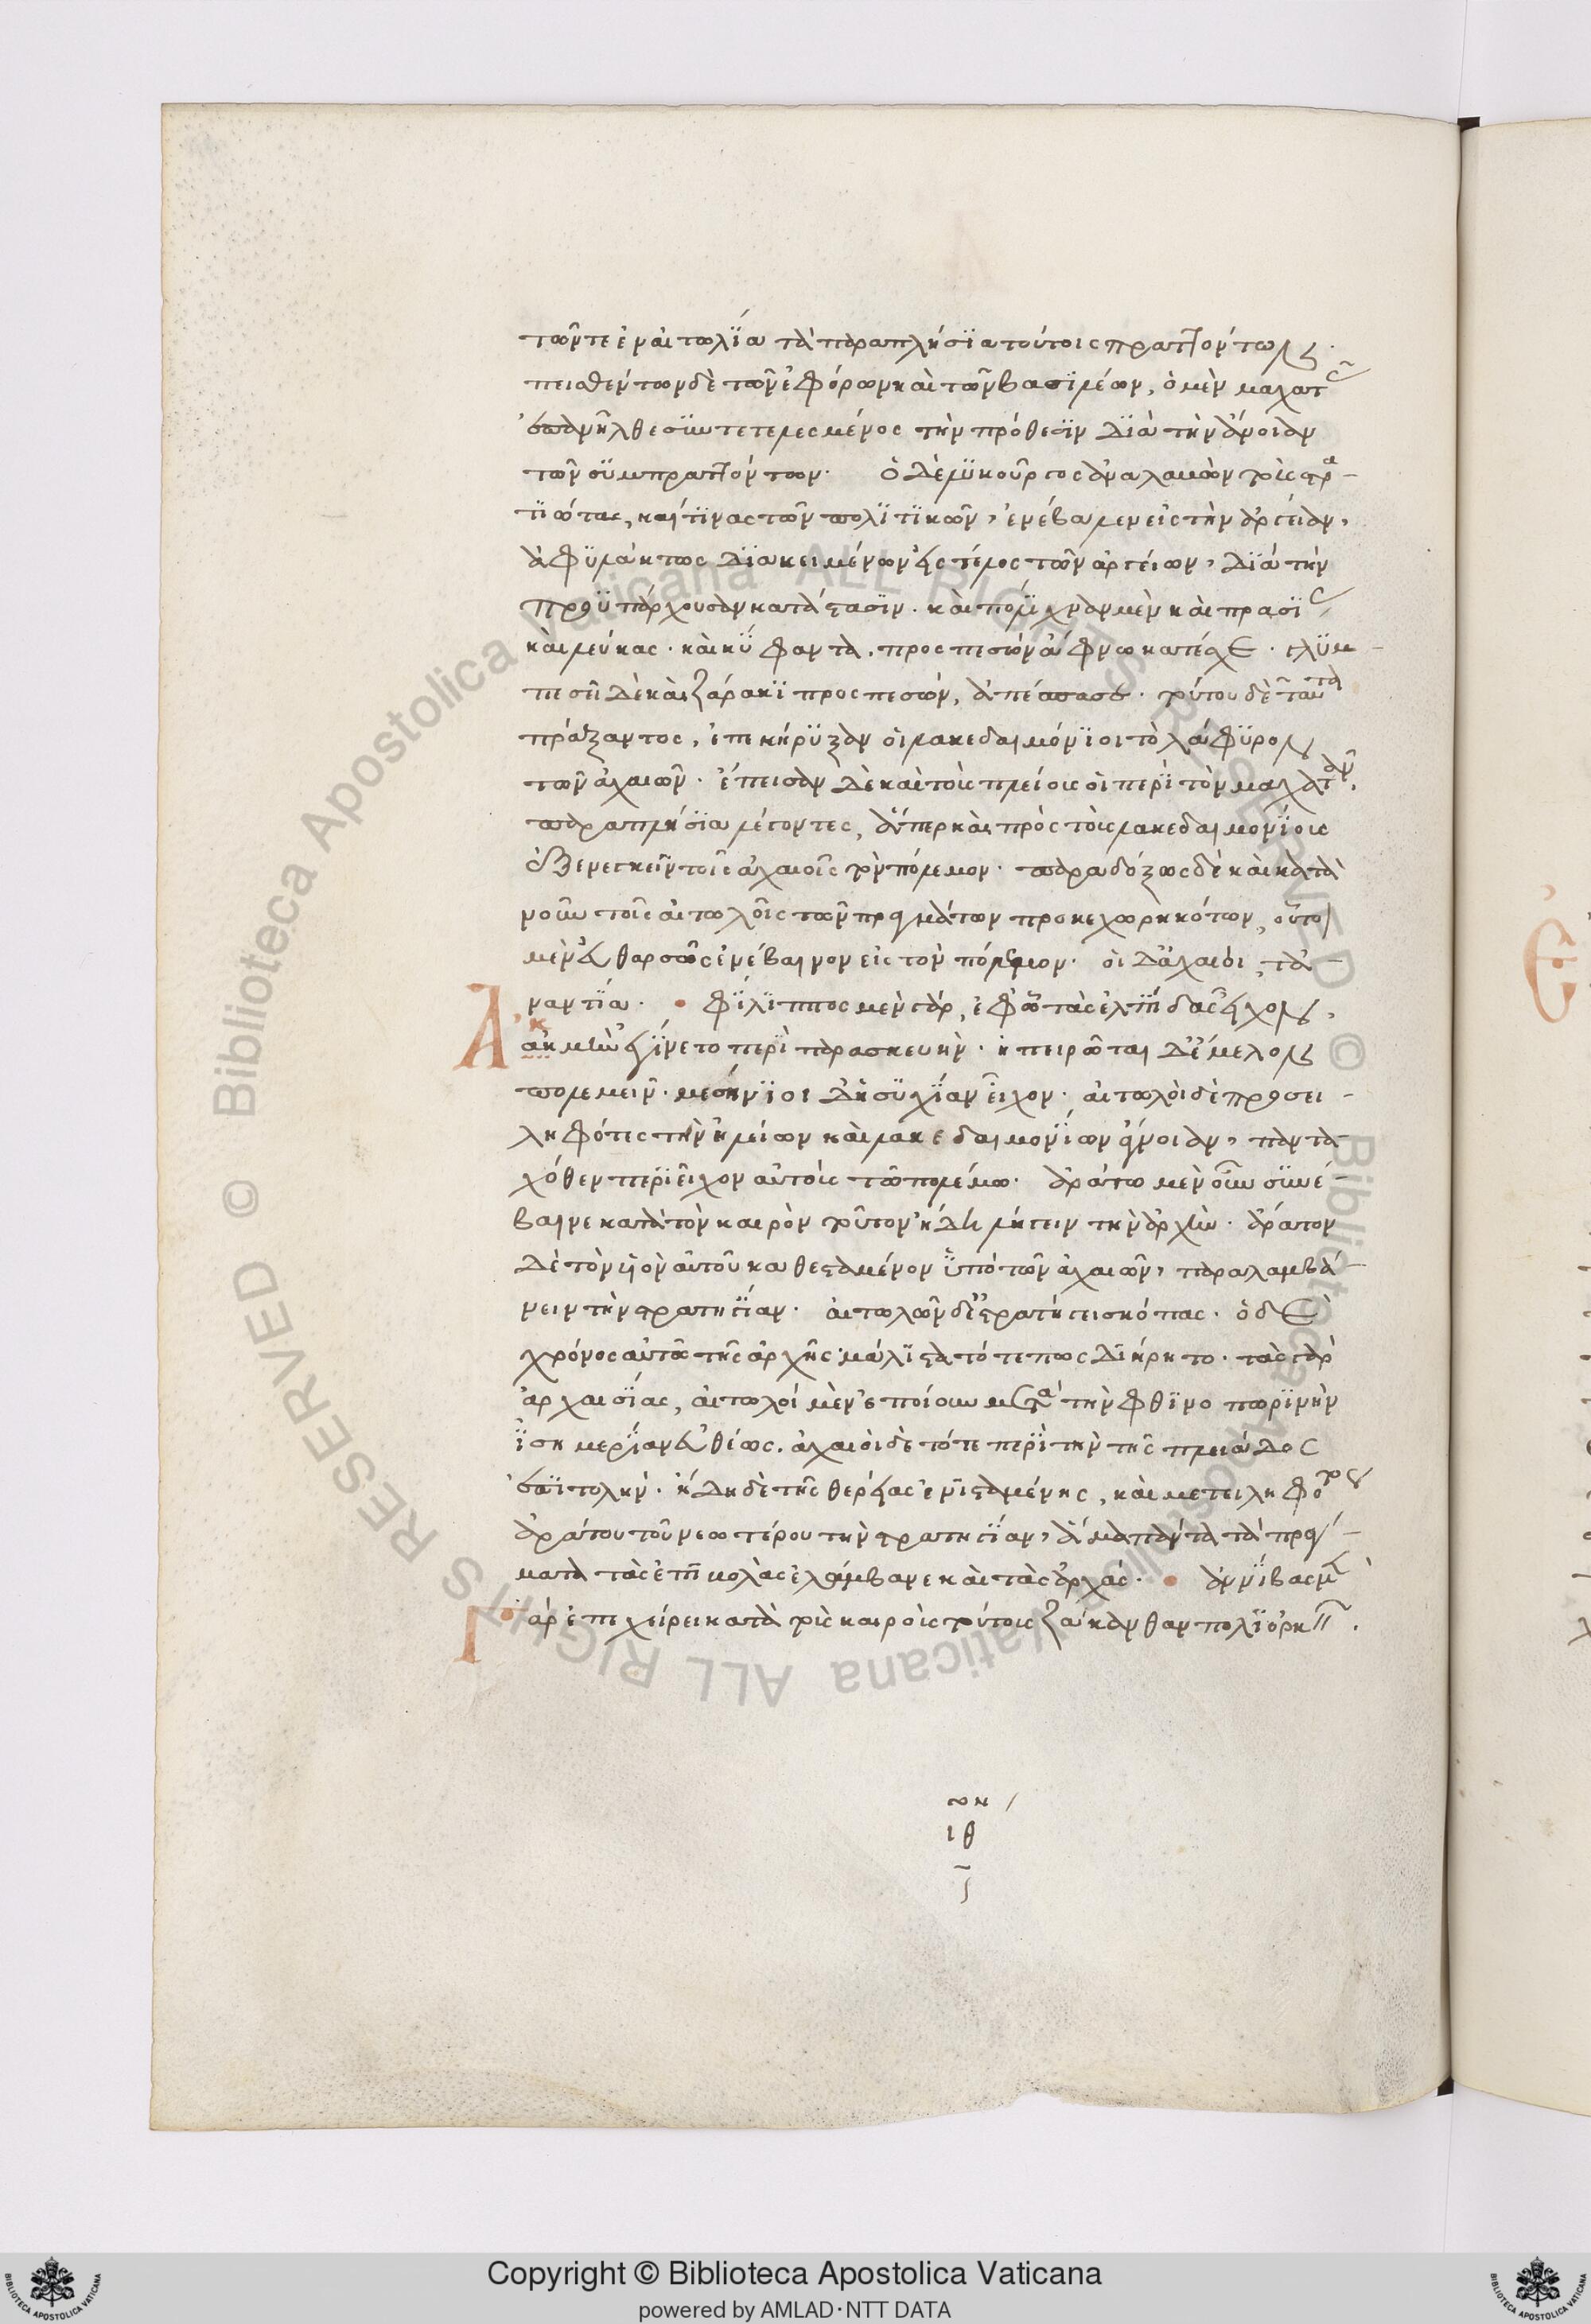 τῶν τε ἐν αἰτωλία τὰ παραπλήσια τούτοις πραττόντων.
πεισθέντων δὲ τῶν ἐφόρων καὶ τῶν βασιλέων, ὁ μὲν μαχατᾶς
ἐπανῆλθε συντετελεσμένος τὴν πρόθεσιν διὰ τὴν ἄνοιαν
τῶν συμπραττόντων. ὁ δὲ λυκοῦργος ἀναλαβὼν τοὺς στρα
τιώτας, καί τινας τῶν πολιτικῶν, ἐνέβαλεν εἰς τὴν ἀργείαν,
ἀφυλάκτως διακειμένων ἐς τέλος τῶν ἀργείων, διὰ τὴν
προϋπάρχουσαν κατάστασιν. καὶ πολίχναν μὲν καὶ πρασί
καὶ λεύκας. καὶ κύφαντα. προσπεσὼν ἄφνω κατέσχε. γλυμ
πέσι δὲ καὶ ζάρακι προσπεσών, ἀπέπεσε. τούτου δὲ ταῦτα
πράξαντος, ἐπεκήρυξαν οἱ λακεδαιμόνιοι τὸ λάφυρον
τῶν ἀχαιῶν. ἔπεισαν δὲ καὶ τοὺς ἠλείους οἱ περὶ τὸν μαχατᾶν,
παραπλήσια λέγοντες, ἅπερ καὶ πρὸς τοὺς λακεδαιμονίους
ἐξενεγκεῖν τοῖς ἀχαιοῖς τὸν πόλεμον. παραδόξως δὲ καὶ κατὰ
νοῦν τοῖς αἰτωλοῖς τῶν πραγμάτων προκεχωρηκότων, οὗτοι
μὲν εὐθαρσῶς ἐνέβαινον εἰς τὸν πόλεμον. οἱ δ' ἀχαιοὶ, τἀ
ναντία. φίλιππος μὲν γάρ, ἐφ' ᾧ τὰς ἐλπίδας εἶχον,
ἀκμὴν ἐγίνετο περὶ παρασκευήν. ἠπειρῶται δ' ἔμελλον
πολεμεῖν. μεσήνιοι δ' ἡσυχίαν εἶχον. αἰτωλοὶ δὲ προσει
ληφότες τὴν ἠλείων καὶ λακεδαιμονίων ἄνοιαν, παντα
χόθεν περιεῖχον αὐτοὺς τῶ πολέμω. ἀράτω μὲν οὖν συνέ
βαινε κατὰ τὸν καιρὸν τοῦτον ἤδη λήγειν τὴν ἀρχήν. ἄρατον
δὲ τὸν υἱὸν αὐτοῦ καθεσταμένον ὑπὸ τῶν ἀχαιῶν, παραλαμβά
νειν τὴν στρατηγίαν. αἰτωλῶν δ' ἐστρατήγει σκόπας. ὁ δὲ
χρόνος αὐτῶ τῆς ἀρχῆς μάλιστα τότε πως διήρητο. τὰς γὰρ
ἀρχαισίας, αἰτωλοὶ μὲν ἐποίουν μετὰ τὴν φθινοπωρινὴν
ἰσημερίαν εὐθέως. ἀχαιοὶ δὲ τότε περὶ τὴν τῆς πλειάδος
ἐπιτολήν. ἤδη δὲ τῆς θερείας ἐνισταμένης, καὶ μετειληφότος
ἀράτου τοῦ νεωτέρου τὴν στρατηγίαν, ἅμα πάντα τὰ πράγ
ματα τὰς ἐπιβολὰς ἐλάμβανε καὶ τὰς ἀρχάς. ἀννίβας μὲν
γὰρ ἐπεχείρει κατὰ τοὺς καιροὺς τούτους ζάκανθαν πολιορκεῖν.
ιθ